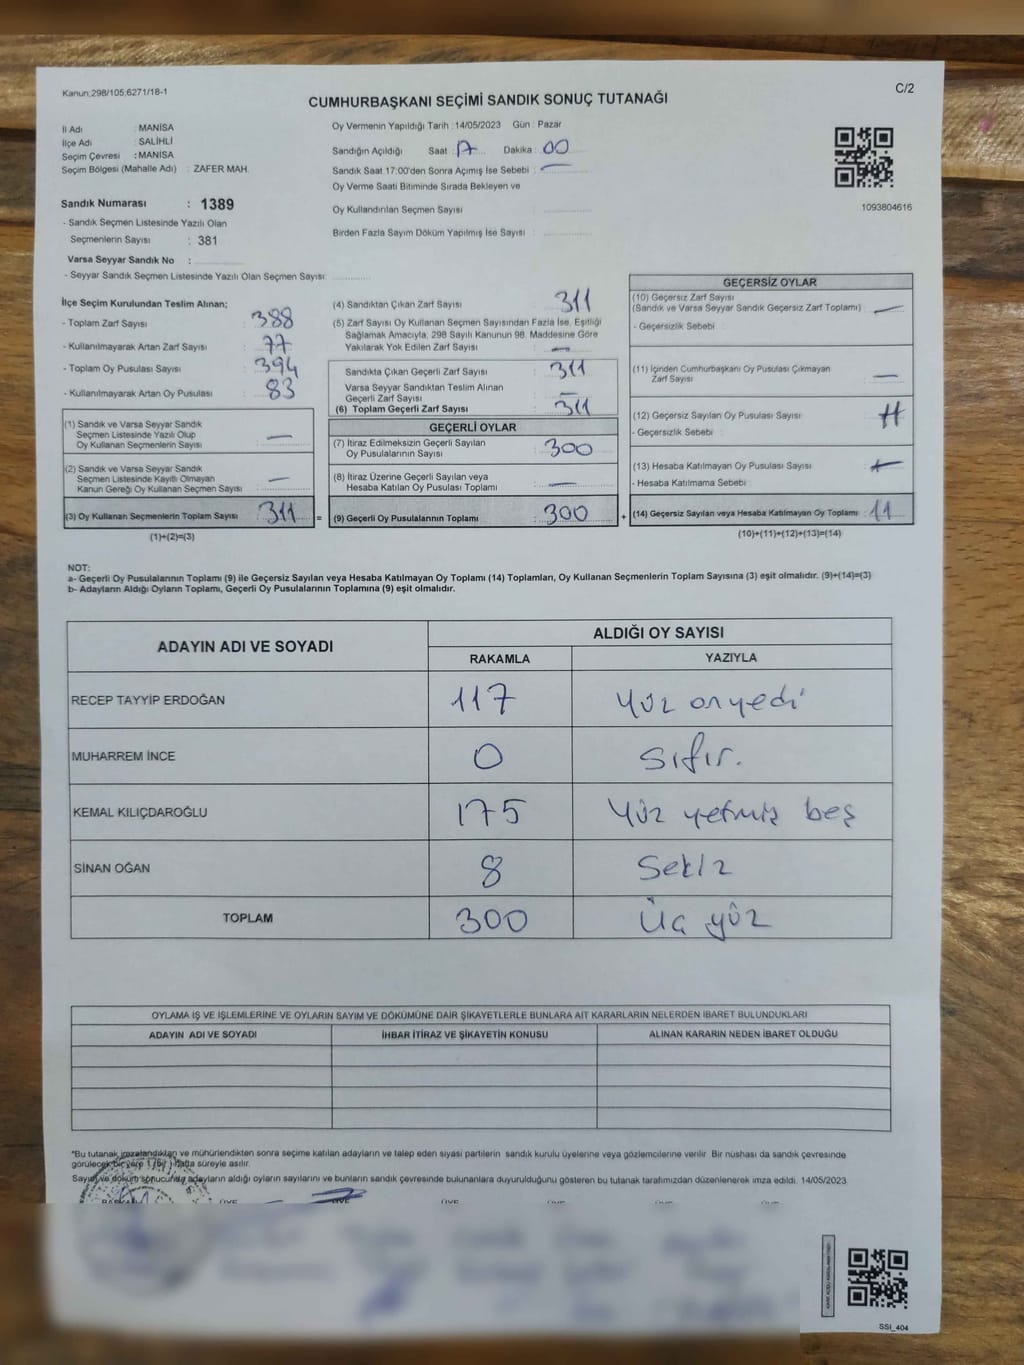 Kanun:298/105,6271/18-1
C/2
CUMHURBAŞKANI SEÇİMİ SANDIK SONUÇ TUTANAĞI
İl Adı : MANİSA
İlçe Adı : SALİHLİ
Seçim Çevresi : MANİSA
Seçim Bölgesi (Mahalle Adı) : ZAFER MAH.
Oy Vermenin Yapıldığı Tarih :14/05/2023 Gün : Pazar
Sandığın Açıldığı Saat : 17 Dakika : 00
Sandık Saat 17:00'den Sonra Açımış İse Sebebi : —
Oy Verme Saati Bitiminde Sırada Bekleyen ve
Oy Kullandırılan Seçmen Sayısı :
Birden Fazla Sayım Döküm Yapılmış İse Sayısı :
1093804616
Sandık Numarası : 1389
- Sandık Seçmen Listesinde Yazılı Olan
Seçmenlerin Sayısı : 381
Varsa Seyyar Sandık No :
- Seyyar Sandık Seçmen Listesinde Yazılı Olan Seçmen Sayısı:
İlçe Seçim Kurulundan Teslim Alınan;
- Toplam Zarf Sayısı : 388
- Kullanılmayarak Artan Zarf Sayısı : 77
- Toplam Oy Pusulası Sayısı : 394
- Kullanılmayarak Artan Oy Pusulası : 83
(1) Sandık ve Varsa Seyyar Sandık
Seçmen Listesinde Yazılı Olup
Oy Kullanan Seçmenlerin Sayısı : —
(2) Sandık ve Varsa Seyyar Sandık
Seçmen Listesinde Kayıtlı Olmayan
Kanun Gereği Oy Kullanan Seçmen Sayısı : —
(3) Oy Kullanan Seçmenlerin Toplam Sayısı : 311 =
(1)+(2)=(3)
(4) Sandıktan Çıkan Zarf Sayısı : 311
(5) Zarf Sayısı Oy Kullanan Seçmen Sayısından Fazla İse, Eşitliği
Sağlamak Amacıyla, 298 Sayılı Kanunun 98. Maddesine Göre
Yakılarak Yok Edilen Zarf Sayısı : —
Sandıkta Çıkan Geçerli Zarf Sayısı : 311
Varsa Seyyar Sandıktan Teslim Alınan
Geçerli Zarf Sayısı : —
(6) Toplam Geçerli Zarf Sayısı : 311
GEÇERLİ OYLAR
(7) İtiraz Edilmeksizin Geçerli Sayılan
Oy Pusulalarının Sayısı : 300
(8) İtiraz Üzerine Geçerli Sayılan veya
Hesaba Katılan Oy Pusulası Toplamı : —
(9) Geçerli Oy Pusulalarının Toplamı : 300 +
GEÇERSİZ OYLAR
(10) Geçersiz Zarf Sayısı
(Sandık ve Varsa Seyyar Sandık Geçersiz Zarf Toplamı) : —
- Geçersizlik Sebebi :
(11) İçinden Cumhurbaşkanı Oy Pusulası Çıkmayan
Zarf Sayısı : —
(12) Geçersiz Sayılan Oy Pusulası Sayısı :
- Geçersizlik Sebebi :
(13) Hesaba Katılmayan Oy Pusulası Sayısı :
- Hesaba Katılmama Sebebi :
(14) Geçersiz Sayılan veya Hesaba Katılmayan Oy Toplamı : 11
(10)+(11)+(12)+(13)=(14)
NOT:
a- Geçerli Oy Pusulalarının Toplamı (9) ile Geçersiz Sayılan veya Hesaba Katılmayan Oy Toplamı (14) Toplamları, Oy Kullanan Seçmenlerin Toplam Sayısına (3) eşit olmalıdır. (9)+(14)=(3)
b- Adayların Aldığı Oyların Toplamı, Geçerli Oy Pusulalarının Toplamına (9) eşit olmalıdır.
ADAYIN ADI VE SOYADI
ALDIĞI OY SAYISI
RAKAMLA YAZIYLA
RECEP TAYYİP ERDOĞAN 117 Yüz onyedi
MUHARREM İNCE 0 sıfır.
KEMAL KILIÇDAROĞLU 175 Yüz yetmiş beş
SİNAN OĞAN 8 Sekiz
TOPLAM 300 Üç yüz
OYLAMA İŞ VE İŞLEMLERİNE VE OYLARIN SAYIM VE DÖKÜMÜNE DAİR ŞİKAYETLERLE BUNLARA AİT KARARLARIN NELERDEN İBARET BULUNDUKLARI
ADAYIN ADI VE SOYADI İHBAR İTİRAZ VE ŞİKAYETİN KONUSU ALINAN KARARIN NEDEN İBARET OLDUĞU
*Bu tutanak imzalandıktan ve mühürlendikten sonra seçime katılan adayların ve talep eden siyasi partilerin sandık kurulu üyelerine veya gözlemcilerine verilir. Bir nüshası da sandık çevresinde
görülecek bir yere 1 (bir) hafta süreyle asılır.
Sayım ve döküm sonucunda adayların aldığı oyların sayılarını ve bunların sandık çevresinde bulunanlara duyurulduğunu gösteren bu tutanak tarafımızdan düzenlenerek imza edildi. 14/05/2023
SSI_404